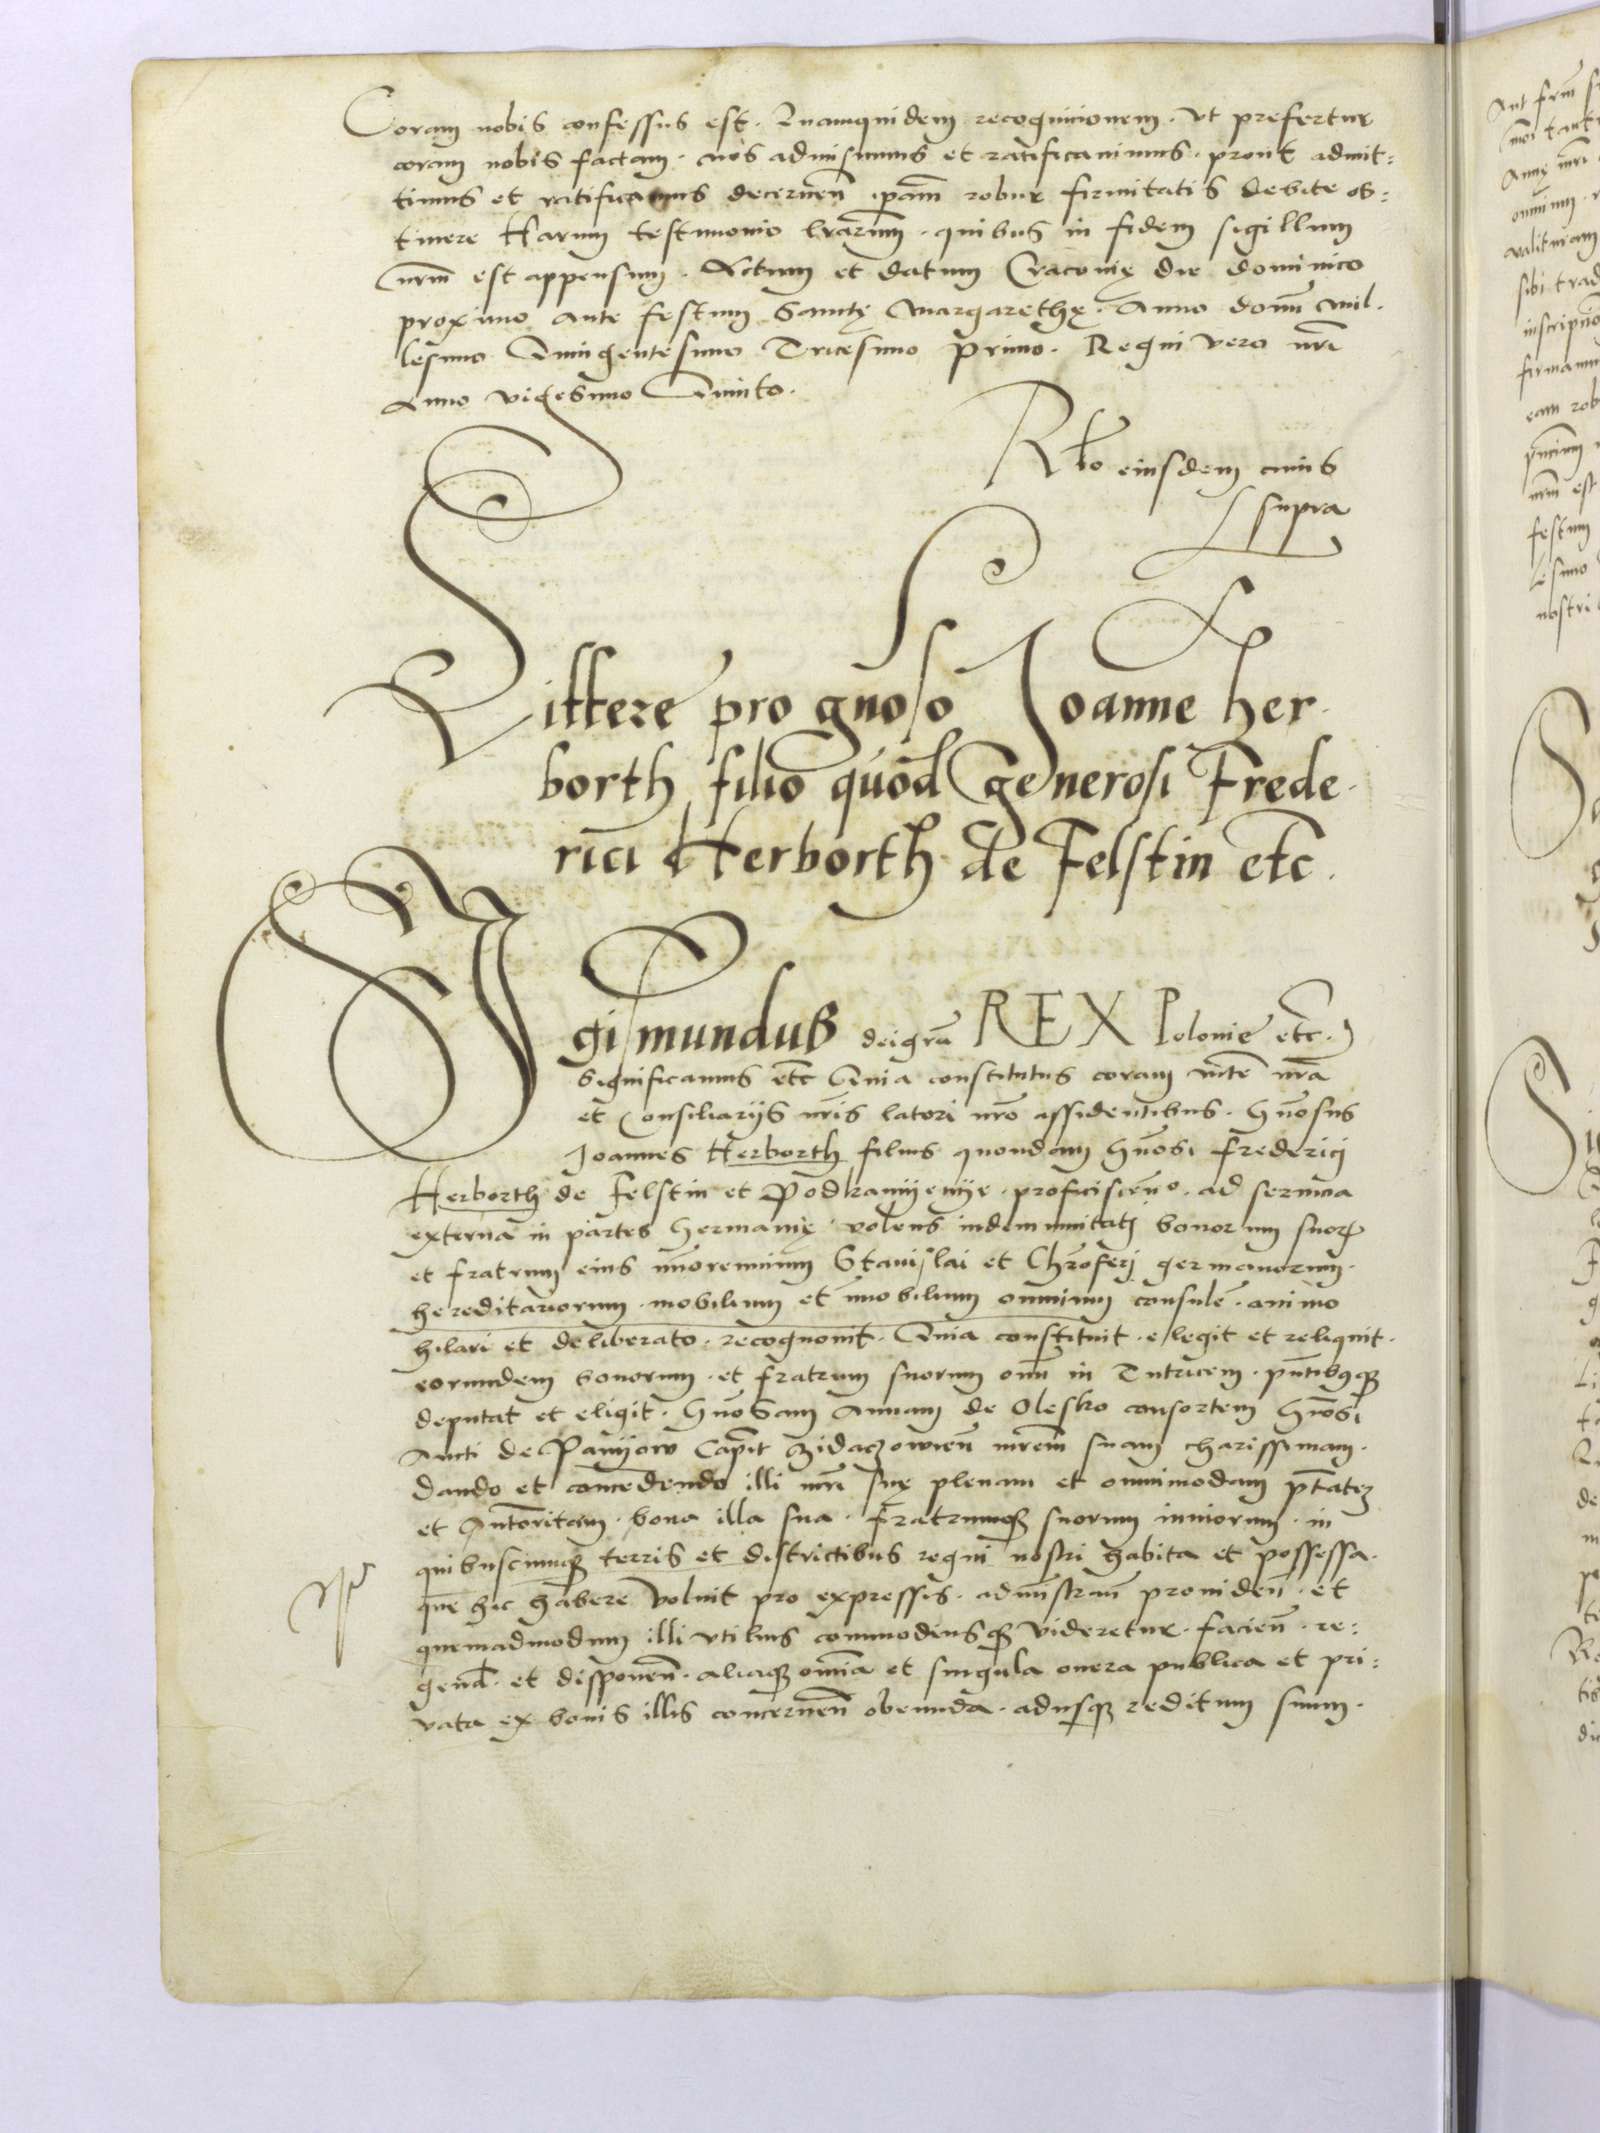 Coram nobis confessus est. Quamquidem recognicionem. Ut prefertur
coram nobis factam. nos admisimus et ratificavimus. prout admit=
timus et ratificamus decernen̄ ipam̄ robur firmitatis debite ob=
tinere Harum testimonio lrārum. quibus in fidem sigillum
nrm̄ est appensum. Actum et datum Cracovię die dominico
proximo ante festum Sanctę Margarethę. Anno domī mil.
lesimo Quingentesimo Tricesimo primo. Regni vero nrī
Anno vigesimo Quinto.
Rlō eiusdem cuius
supra
Littere pro gnoso Joanne her.
borth filio quōd Generosi Frede.
rici Herborth de Felstin etc.
Sigismundus dei grā REX Polonie etc.
Significamus etc Quia constitutus coram mtē nrā
et Consiliariis nrīs lateri nrō assidentibus. Gnōsus
Joannes Herborth filius quondam Gnōsi Frederici
Herborth de Felstin et Podkamyenye. proficiscen̄o. ad servicia
externa in partes Germanię. volens indemnitati bonorum suorꝝ
et fratrum eius iuniorennium Stanislai et Chrōferi germanorum.
hereditariorum. mobilium et imobilium omnium consulē. animo
hilari et deliberato. recognovit. Quia constituit. elegit et reliquit.
eorundem bonorum. et fratrum suorum om̄ in Tutricem. pn̄tibusqꝫ
deputat et eligit. Gnōsam Annam de Olesko consortem Gnōsi
Aucti de Panyow Capit Zidaczowien̄ mrēm suam charissimam.
dando et concedendo illi mrī suę plenam et omnimodam ptātem
et Autoritatem. bona illa sua. Fratrumqꝫ suorum iuniorum. in
quibuscunqꝫ terris et districtibus regni nostri habita et possessa.
que hic habere voluit pro expressis. adminstran̄ providen̄. et
quemadmodum illi utilius commodiusqꝫ videretur. facien̄. re=
gend. et disponen̄. aliaqꝫ omīa et singula onera publica et pri=
vata ex bonis illis concernen̄ obeunda. adusqꝫ reditum suum.